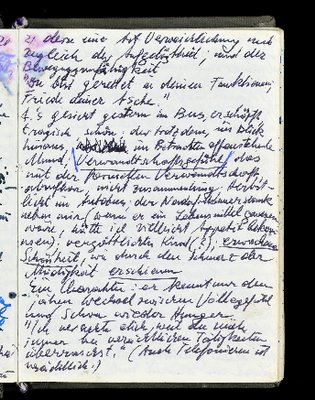 21 dem eine Art Verweichlichung auch
zugleich der Aufgelöstheit, und der
Bewegungsunfähigkeit
"Du bist gerettet in deinen Funktionen,
Friede deiner Asche."
A.'s Gesicht gestern im Bus, erschöpft
tragisch schön; der trotzdem, ins
hinaus, im Betrachten offenstehende
Mund, "Verwandtschaftsgefühle", das
mit der Verwandtschaft,
abrufbar, nicht Zusammenhang Herbst-
licht im Autobus, der
neben mir (wenn er ein Lebensmittel gewesen
wäre, hätte ich vielleicht Appetit bekom-
men), Kind (?); erwachsene
Schönheit, wo durch den Schmerz oder
Müdigkeit erschienen
Ein Charakter: er kennt nur den
jähen Wechsel zwischen Völlegefühl
und schon wieder Hunger
"Ich verachte dich, weil du mich
immer bei verächtlichen Tätigkeiten
überraschst." (Auch Telefonieren ist
verächtlich.)